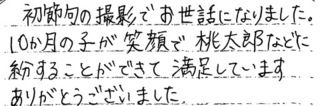 初節句の撮影でお世話になりました。
10か月の子が笑顔で桃太郎などに
紛することができて満足しています
ありがとうございました